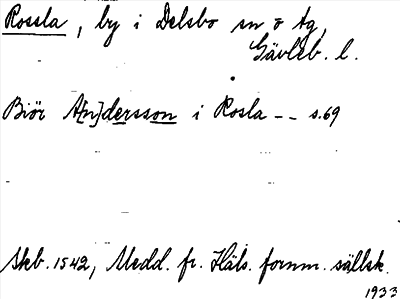 Rossla, by i Delsbo sn ö tg,
Gävleb. l.
Biör A[n]dersson i Rosla -- s.69
Skb. 1542, Medd. fr. Häls. fornm. sällsk.
1933